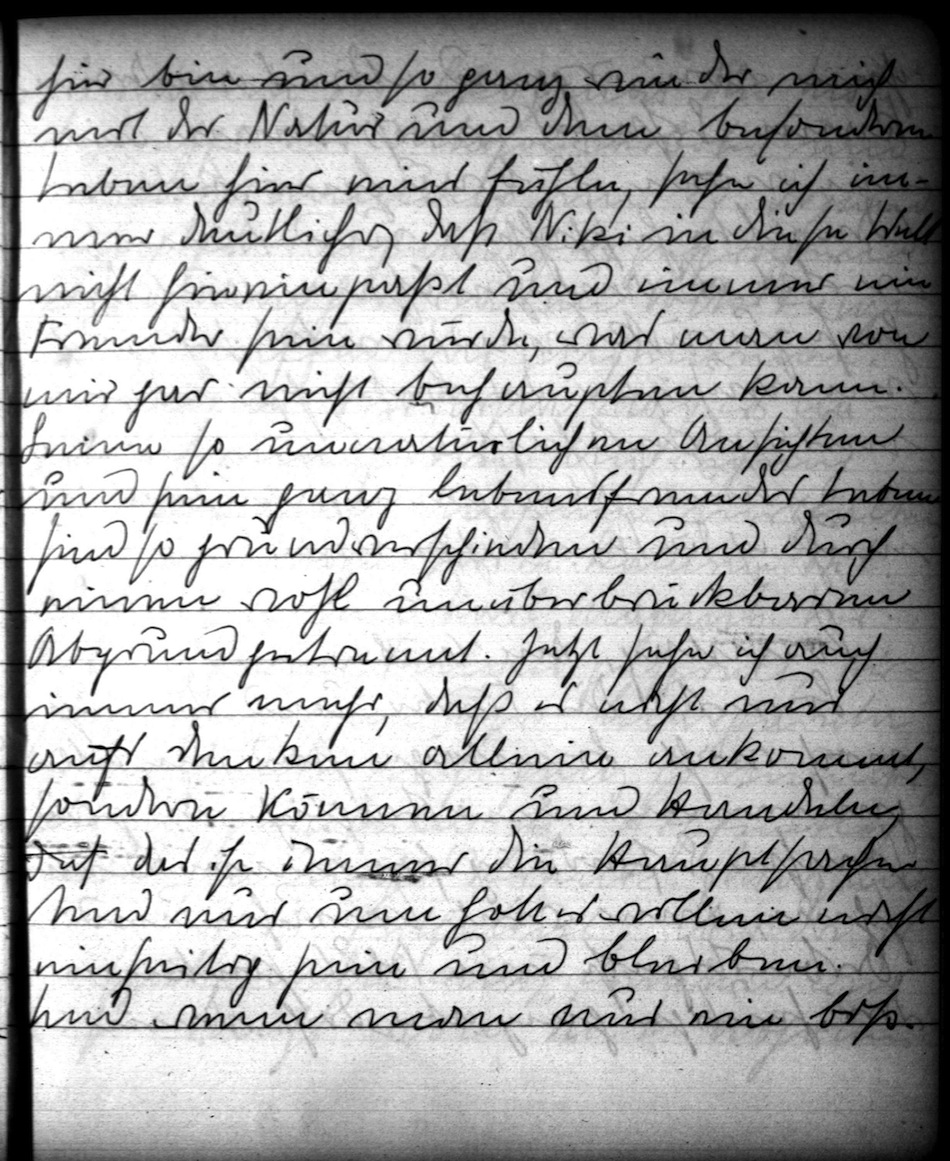 hier bin und so ganz wieder mich
mit der Natur und dem besonderen
Leben hier eins fühle, sehe ich im-
mer deutlicher, daß Niki in diese Welt
nicht hineinpaßt und immer ein
Fremder sein würde, was man von
mir gar nicht behaupten kann.
Seine so unnatürlichen Ansichten
und sein ganz lebensfremdes Leben
sind so grundverschieden und durch
einen wohl unüberbrückbaren
Abgrund getrennt. Jetzt sehe ich auch
immer mehr, daß es nicht nur
aufs denken alleine ankommt,
sondern Können und Handeln,
Tat das ist immer die Hauptsache
Und nur um Gottes willen nicht
einseitig sein und bleiben.
Und wenn man nur ein biß-